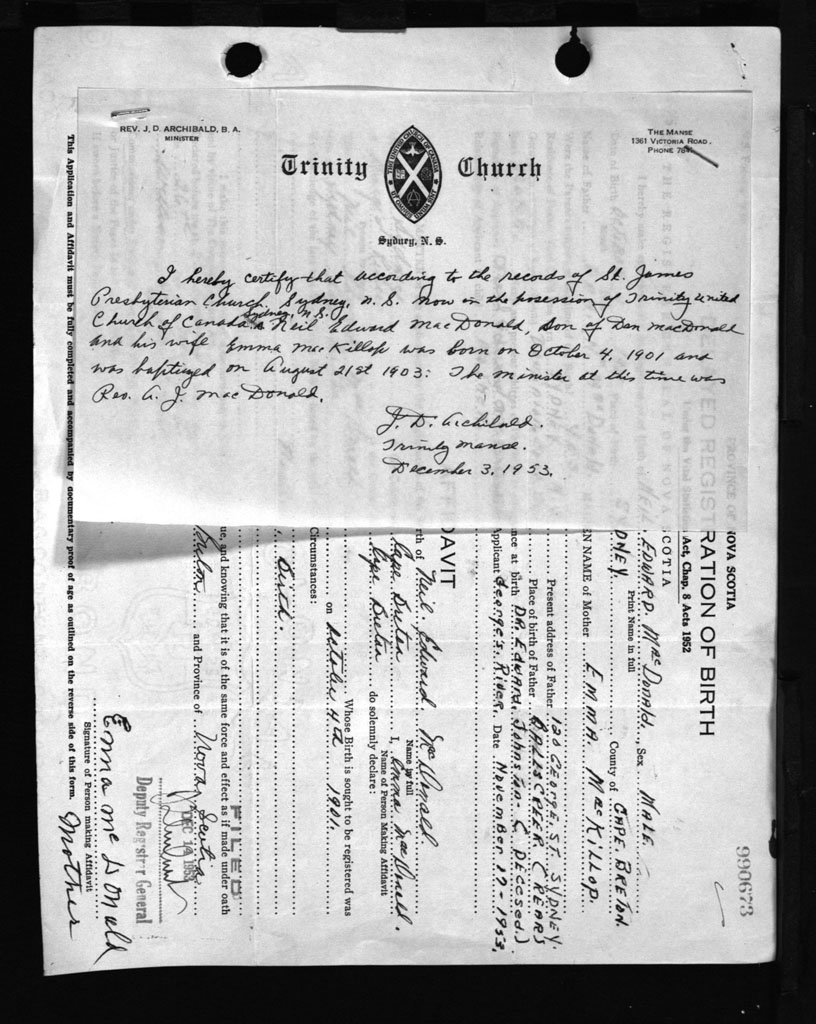 REV. J. D. ARCHIBALD, B. A.
MINISTER
THE MANSE
1361 VICTORIA ROAD.
PHONE
Trinity Church
THE UNITED CHURCH OF CANADA
Sydney, N. S.
I hereby certify that according to the records of St. James
Presbyterian Church, Sydney, N. S. now in the posession of Trinity United
Church of Canada, Sydney, N.S. Neil Edward MacDonald, son of Dan MacDonald
and his wife Emma MacKillop was born on October 4, 1901 and
was baptized on August 21st 1903: The minister at this time was
Rev. A. J. MacDonald.
J. D. Archibald.
Trinity Manse.
December 3. 1953.
990673
PROVINCE OF NOVA SCOTIA
RATION OF BIRTH
Act, Chap. 8 Acts 1952
EDWARD. MacDONALD. Sex MALE
Print Name in full
DNEY. County of CAPE BRETON
EN NAME of Mother EMMA MacKILLOP.
Present address of Father 120 GEORGE. ST. SYDNEY.
Place of birth of Father
ance at birth DR. EDWARD. JOHNSTON-
Applicant GEORGES RIVER. Date NOVEMBER 17-1953.
DAVIT
rth of Neil Edward MacDonald
Name in full
Cape Breton I, Emma MacDonald.
Name of Person Making Affidavit
Cape Breton do solemnly declare:
Whose Birth is sought to be registered was
on October 4th 1901.
Circumstances:
Birth.
ue, and knowing that it is of the same force and effect as if made under oath
Breton and Province of Nova Scotia
FILED
DEC 14 1953
Deputy Registrar General
Emma McDonald Mother
Signature of Person making Affidavit
This Application and Affidavit must be fully completed and accompanied by documentary proof of age as outlined on the reverse side of this form.